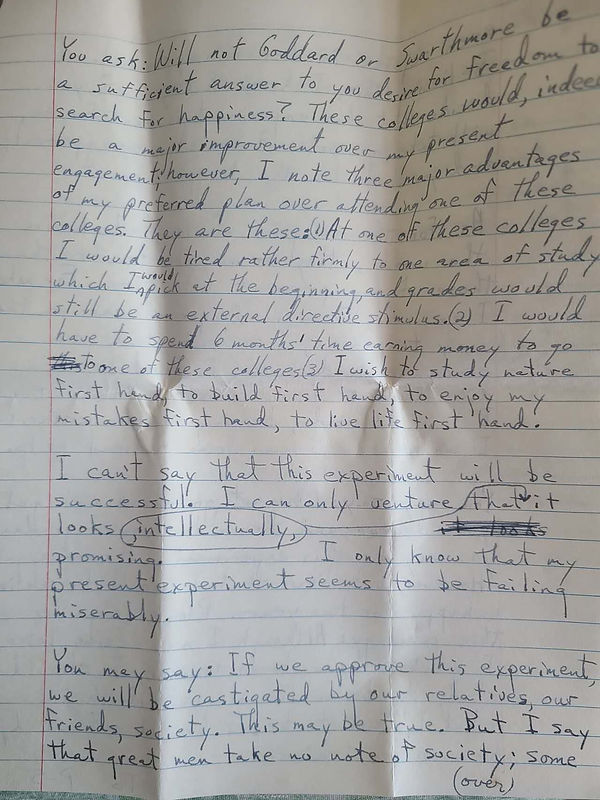 You ask: Will not Goddard or Swarthmore be
a sufficient answer to you desire for freedom to
search for happiness? These colleges would, indeed
be a major improvement over my present
engagement; however, I note three major advantages
of my preferred plan over attending one of these
colleges. They are these: (1) At one of these colleges
I would be tired rather firmly to one area of study
which I would pick at the beginning, and grades would
still be an external directive stimulus. (2) I would
have to spend 6 months' time earning money to go
to one of these colleges (3) I wish to study nature
first hand, to build first hand, to enjoy my
mistakes first hand, to live life first hand.
I can't say that this experiment will be
successful. I can only venture that it
looks, intellectually,
promising. I only know that my
present experiment seems to be failing
miserably.
You may say: If we approve this experiment,
we will be castigated by our relatives, our
friends, society. This may be true. But I say
that great men take no note of society; some
(over)